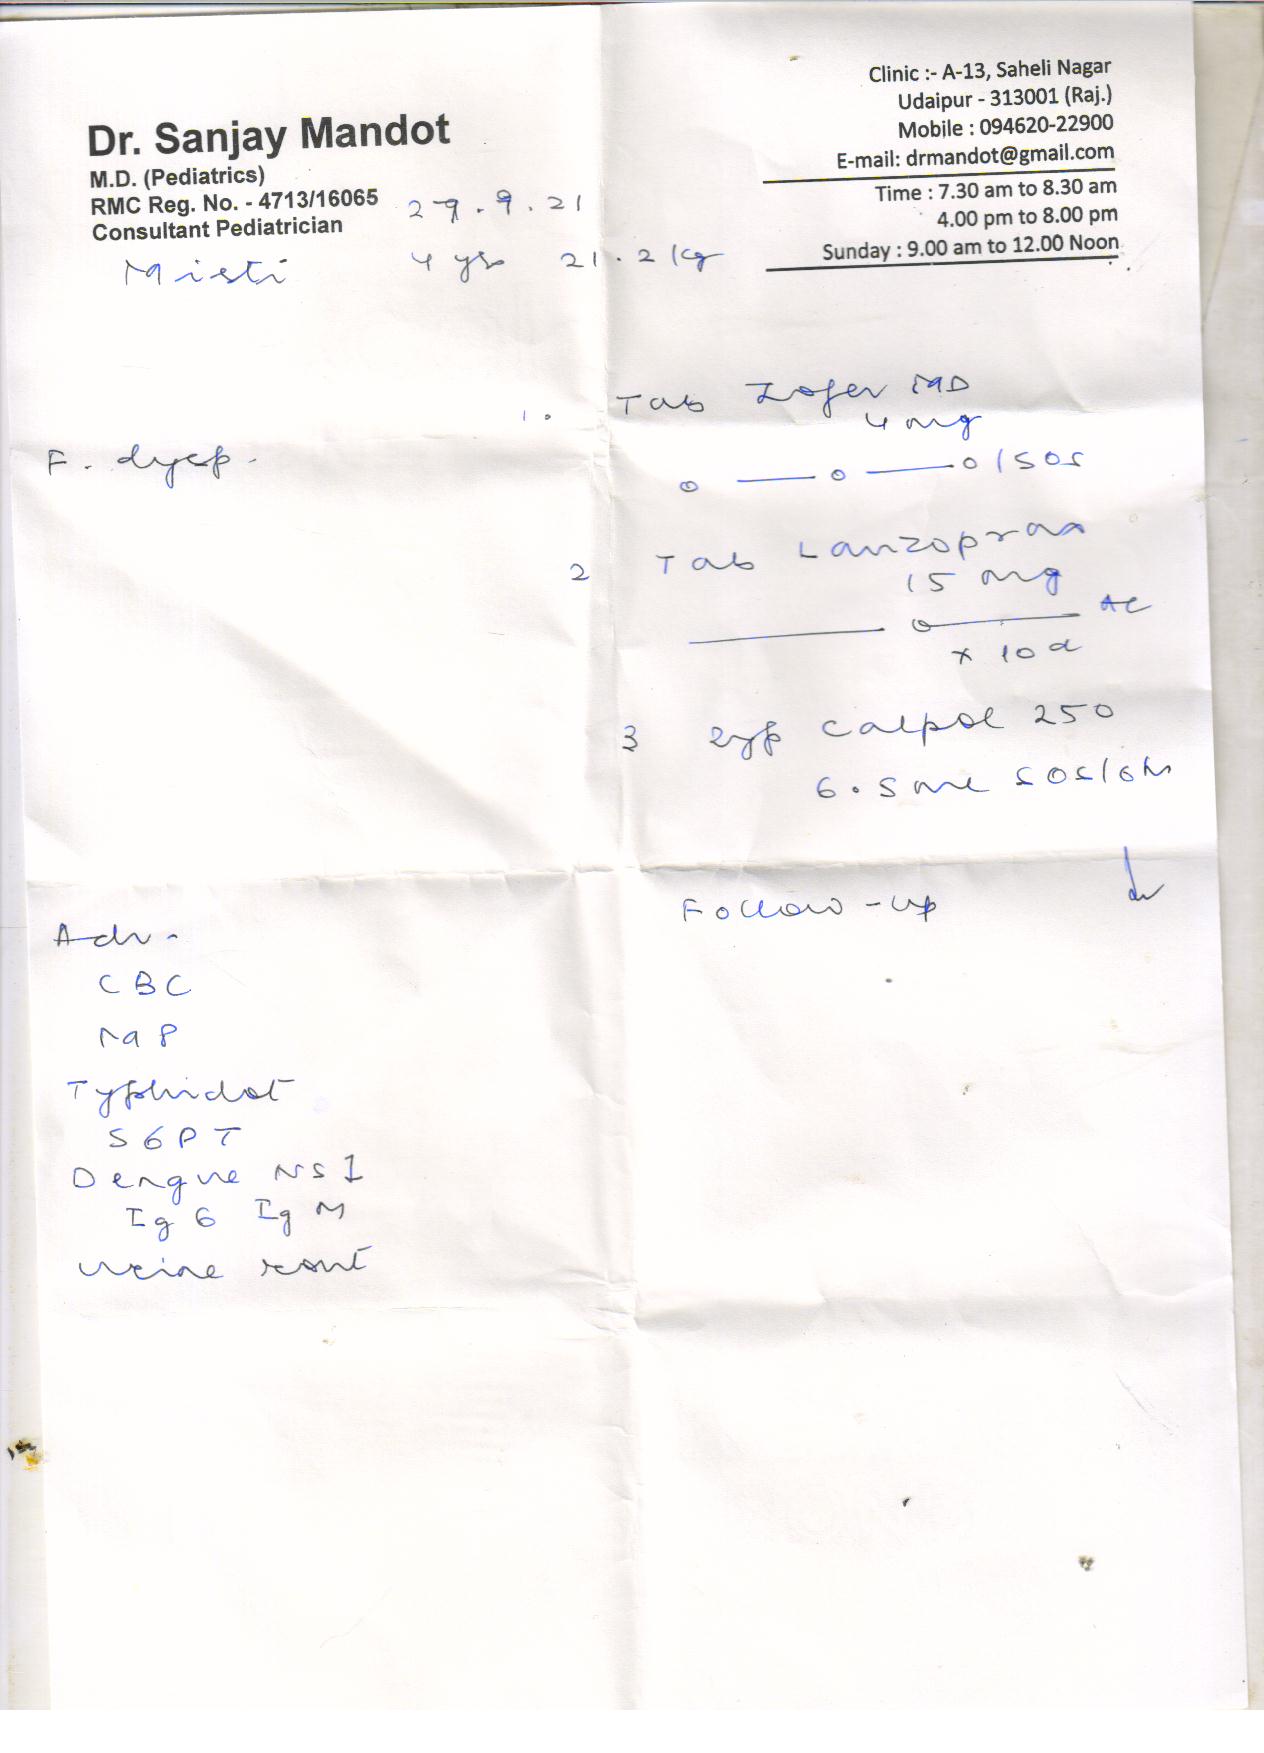 Dr. Sanjay Mandot
M.D. (Pediatrics)
RMC Reg. No. - 4713/16065
Consultant Pediatrician
Clinic :- A-13, Saheli Nagar
Udaipur - 313001 (Raj.)
Mobile : 094620-22900
E-mail: drmandot@gmail.com
Time : 7.30 am to 8.30 am
4.00 pm to 8.00 pm
Sunday : 9.00 am to 12.00 Noon
29.9.21
Misti 4 yrs 21.2 kg
F. dysp.
1. Tab Zofer MD
4 mg
o — o — o / SOS
2 Tab Lanzopran
15 mg
— o — AC
x 10 d
3 Syp Calpol 250
6.5 ml SOS/6h
Follow-up
Adv.
CBC
MP
Typhidot
SGPT
Dengue NS1
IgG IgM
Urine rout